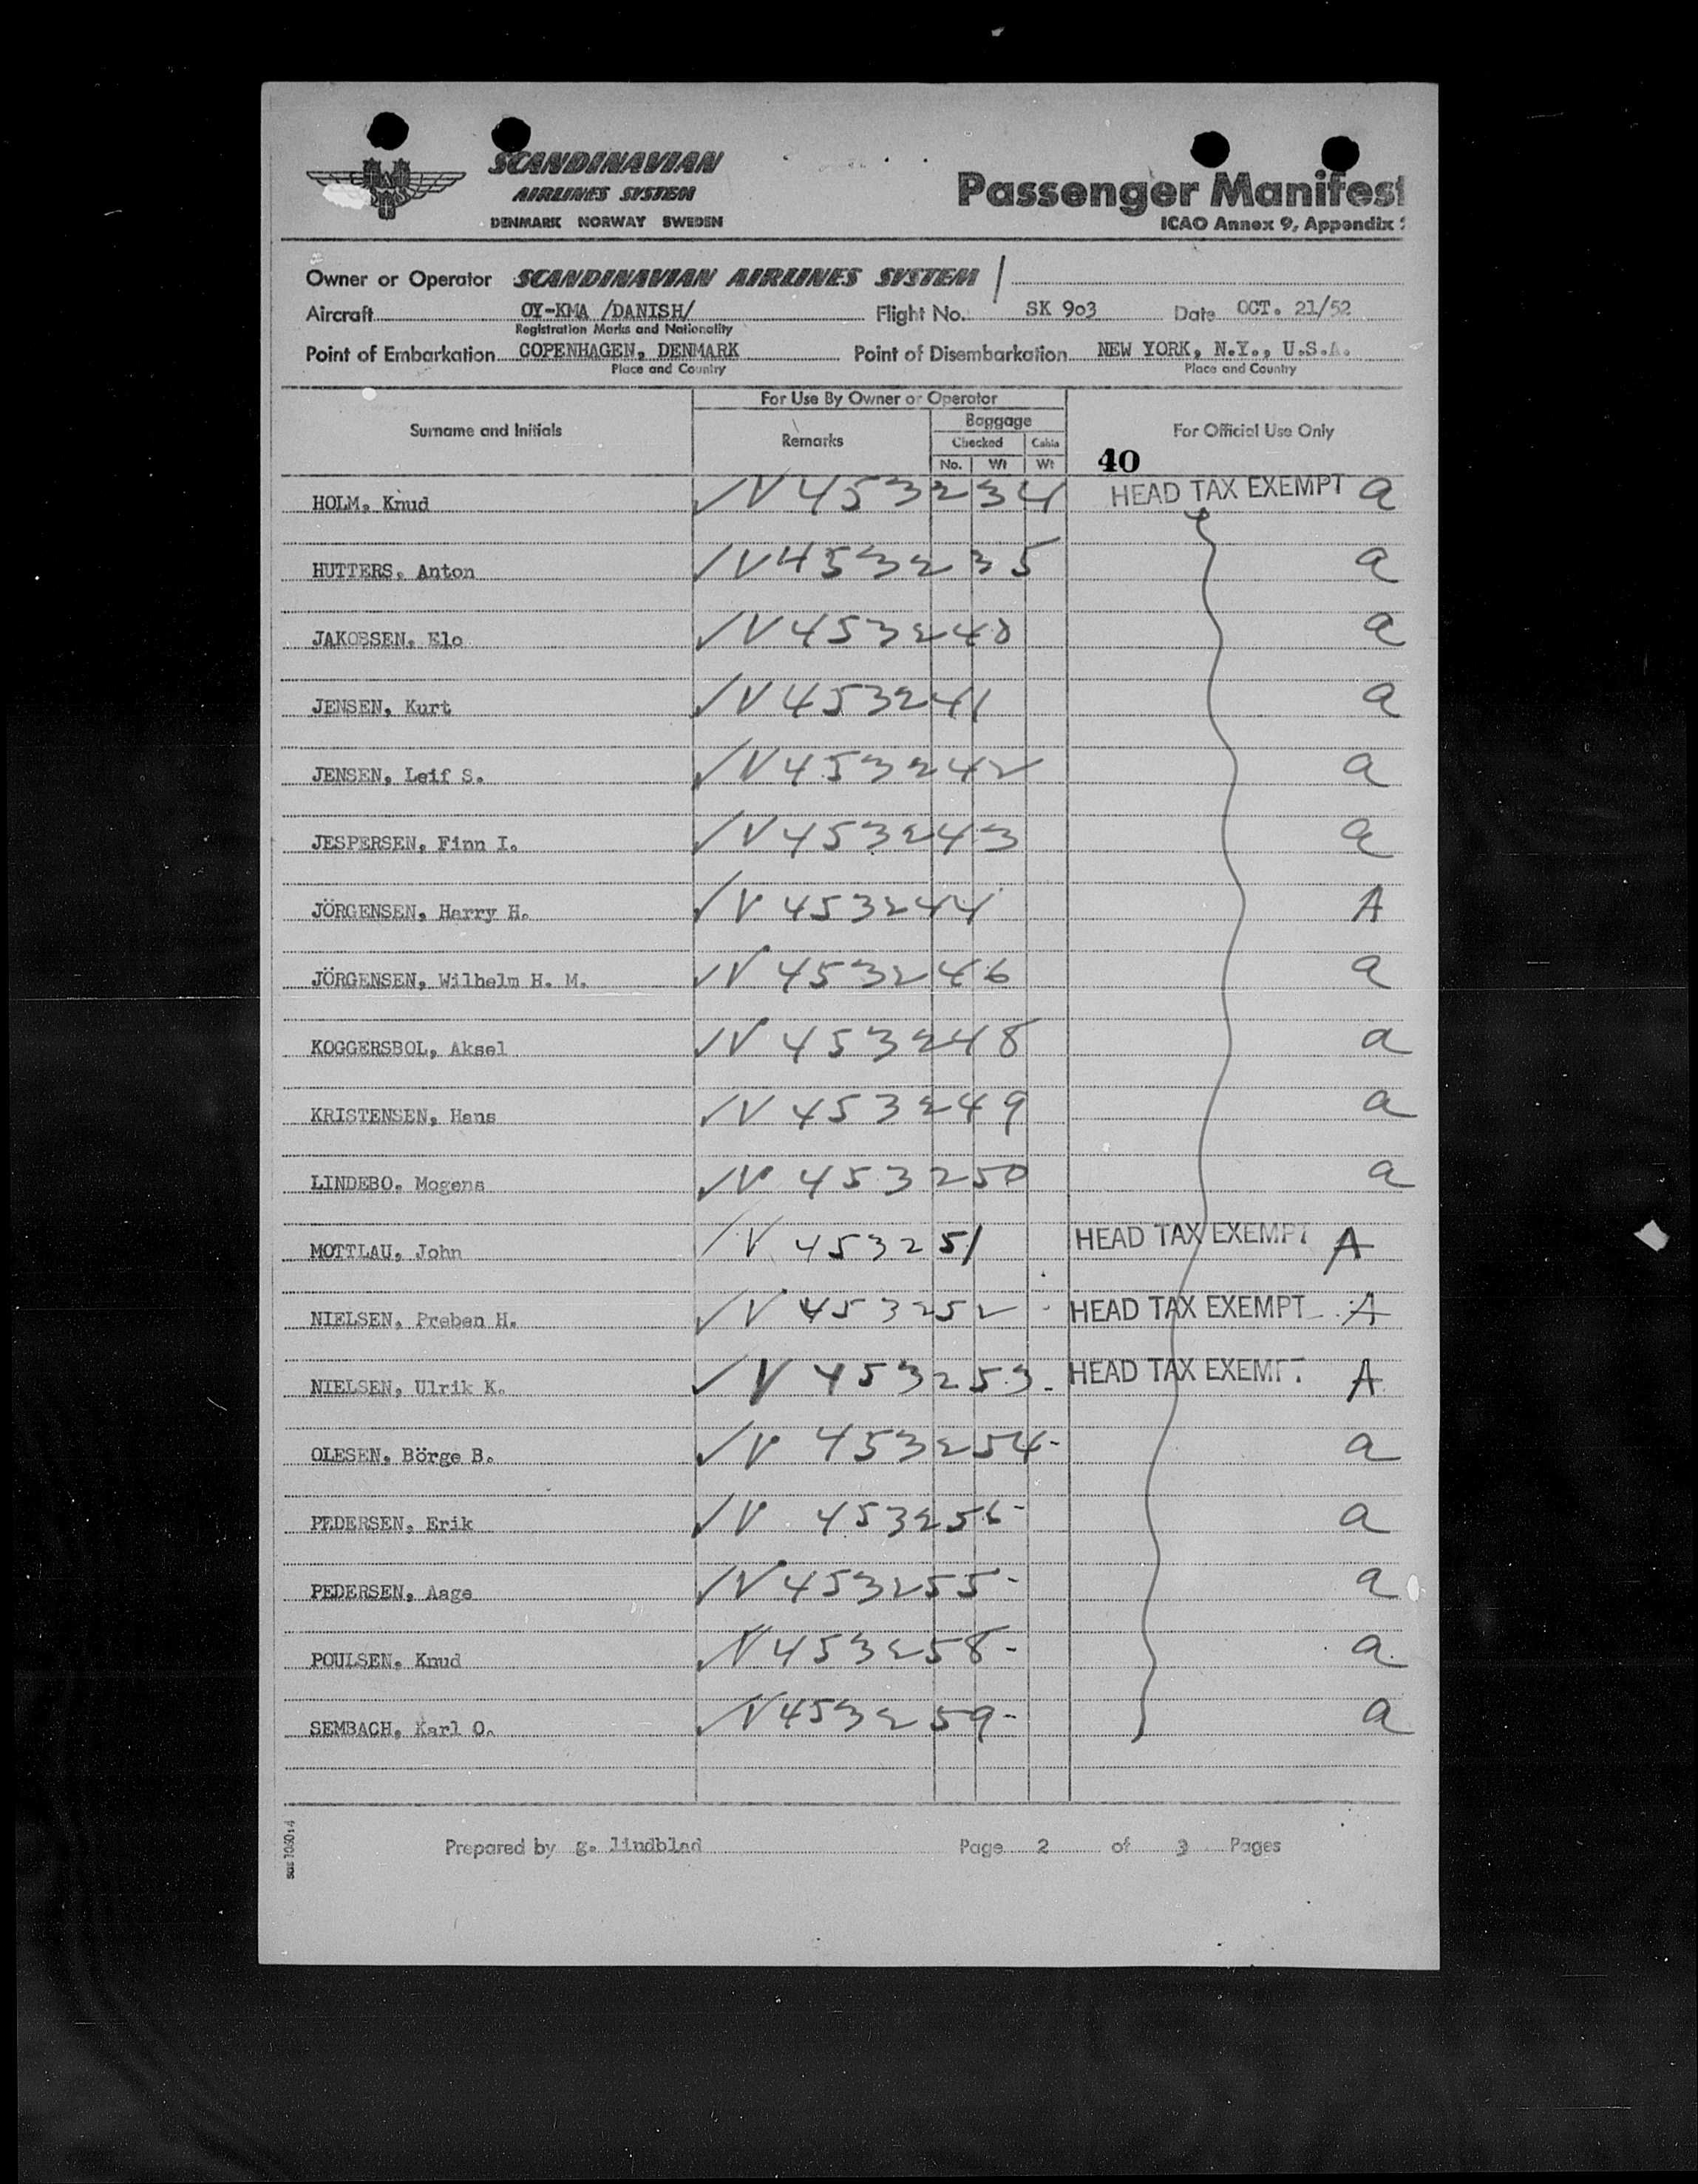 SCANDINAVIAN
AIRLINES SYSTEM
DENMARK NORWAY SWEDEN
Passenger Manifest
ICAO Annex 9, Appendix
Owner or Operator SCANDINAVIAN AIRLINES SYSTEM
Aircraft OY-KMA /DANISH/ Flight No. SK 903 Date OCT. 21/52
Registration Marks and Nationality
Point of Embarkation COPENHAGEN, DENMARK Point of Disembarkation NEW YORK, N.Y., U.S.A.
Place and Country Place and Country
For Use By Owner or Operator
Surname and Initials Remarks Baggage For Official Use Only
Checked Cabin
No. Wt Wt 40
HOLM, Knud V 453234 HEAD TAX EXEMPT a
HUTTERS, Anton V 453235 a
JAKOBSEN, Elo V 453240 a
JENSEN, Kurt V 453241 a
JENSEN, Leif S. V 453242 a
JESPERSEN, Finn I. V 453243 a
JÖRGENSEN, Harry H. V 453244 A
JÖRGENSEN, Wilhelm H. M. V 453246 a
KOGGERSBOL, Aksel V 453248 a
KRISTENSEN, Hans V 453249 a
LINDEBO, Mogens V 453250 a
MOTTLAU, John V 453251 HEAD TAX EXEMPT A
NIELSEN, Preben H. V 453252 HEAD TAX EXEMPT A
NIELSEN, Ulrik K. V 453253 HEAD TAX EXEMPT A
OLESEN, Börge B. V 453254 a
PEDERSEN, Erik V 453256 a
PEDERSEN, Aage V 453255 a
POULSEN, Knud V 453258 a
SEMBACH, Karl O. V 453259 a
Prepared by g. lindblad Page 2 of 3 Pages